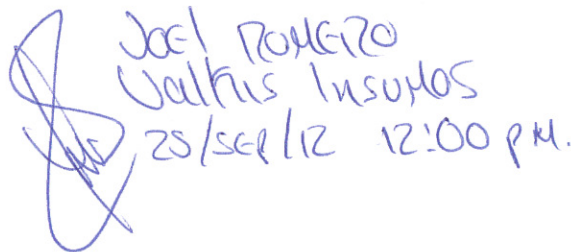 Joel ROMERO
Valkus Insumos
25/SEP/12 12:00 P.M.